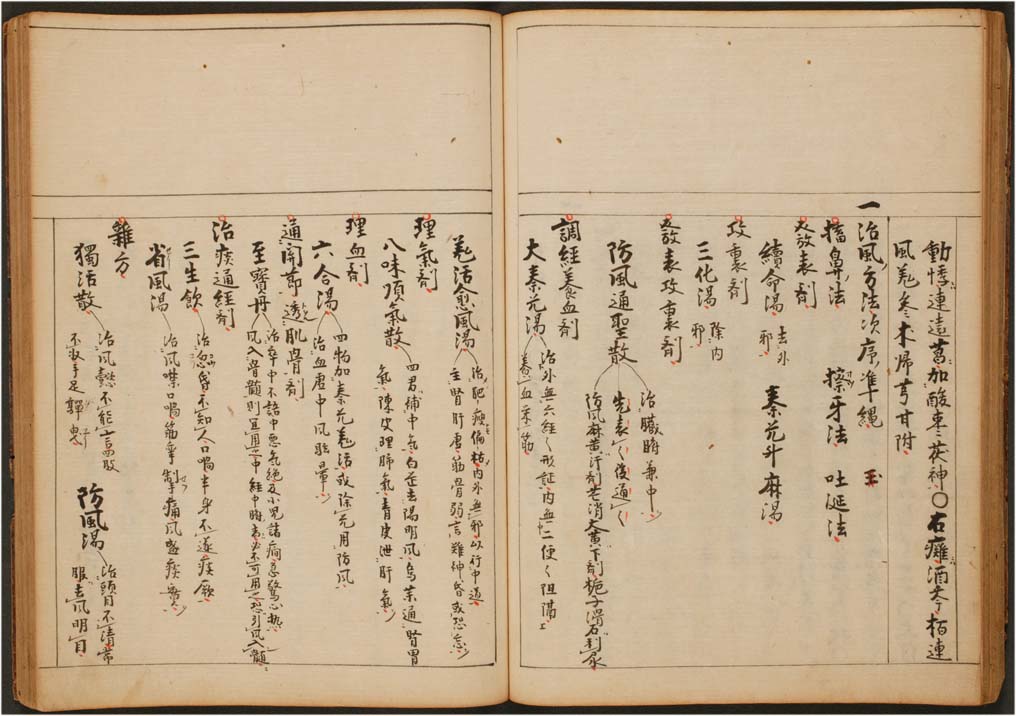 動悸連遠葛加酸棗茯神〇右癱酒芩栢連
風羗冬木帰芎甘附
一治風方法次序準縄 玉
搐鼻法 擦牙法 吐涎法
發表剤
續命湯 去外邪 秦艽升麻湯
攻裏剤
三化湯 除内邪
發表攻裏剤
防風通聖散 治臓腑兼中
先表〱後通〱
防風麻黄汗剤芒消大黄下剤梔子滑石利尿
調経養血剤
大秦艽湯 治外無六経〱形証内無二便〱阻隔
養血栄筋
羗活愈風湯 治肥瘦偏枯内外無邪以行中道
主腎肝虚筋骨弱言難神昏或恐忘
理氣剤
八味順氣散 四君補中氣白芷去陽明風烏茱通腎胃
氣陳皮理肺氣青皮泄肝氣
理血剤
六合湯 四物加秦艽羗活或除艽用防風
治血虚中風眩暈
通関節透肌骨剤
至寳丹 治卒中不語中悪氣絶及小児諸癇急驚心熱
風入骨髓則宜用之中経中腑者必不可用之恐引風入髓
治痰通経剤
三生飲 治忽昏不知人口喎半身不遂痰厥
省風湯 治風噤口喎筋攣掣痛風盛痰實
雜方
獨活散 治風懿不能言四肢
不收手足嚲曳
防風湯 治頭目不清常
服去風明目